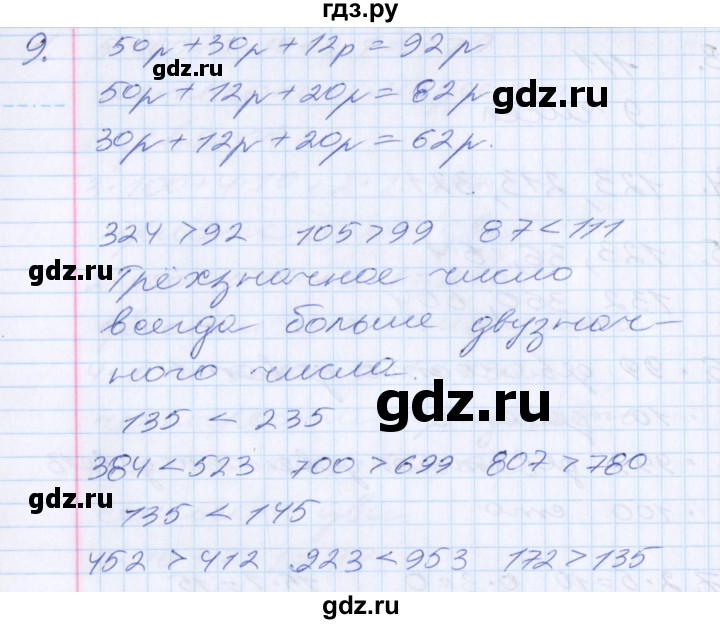 гдз.ру
9. 50р + 30р + 12р = 92р
gdz.ru
50р + 12р + 20р = 82р
gdz.ru
30р + 12р + 20р = 62р.
324 > 92 105 > 99 87 < 111
gdz.ru
Трёхзначное число
всегда больше двузнач-
ного числа.
gdz.ru
135 < 235
384 < 523 700 > 699 807 > 780
gdz.ru
135 < 145
452 > 412 223 < 953 172 > 135
gdz.ru gdz.ru
gdz.ru